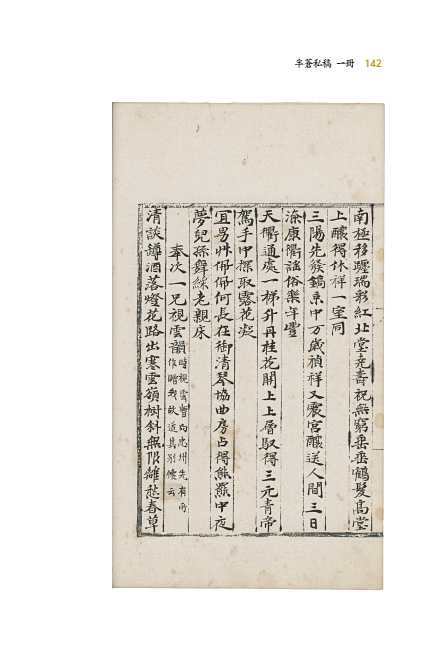 半蒼私稿 一冊 142
南極移躔瑞彩紅北堂走壽祝無窮垂垂鶴髮高堂
上釀得休祥一室同
三陽先候鎬京中万歲禎祥又震宮釀送人間三日
滌康衢謠俗樂年豐
天衢通處一梯升丹桂花開上上層馭得三元青帝
駕手中探取露花凝
宜男艸佩佩何長在御清琴協曲房占得熊羆中夜
夢兒孫舞綵老親床
奉次一兄視雲韻
時視雲曾向忠州先有所
作贈我故近其別懷云
清談罇酒落燈花路出寒雲嶺樹斜無限離愁春草